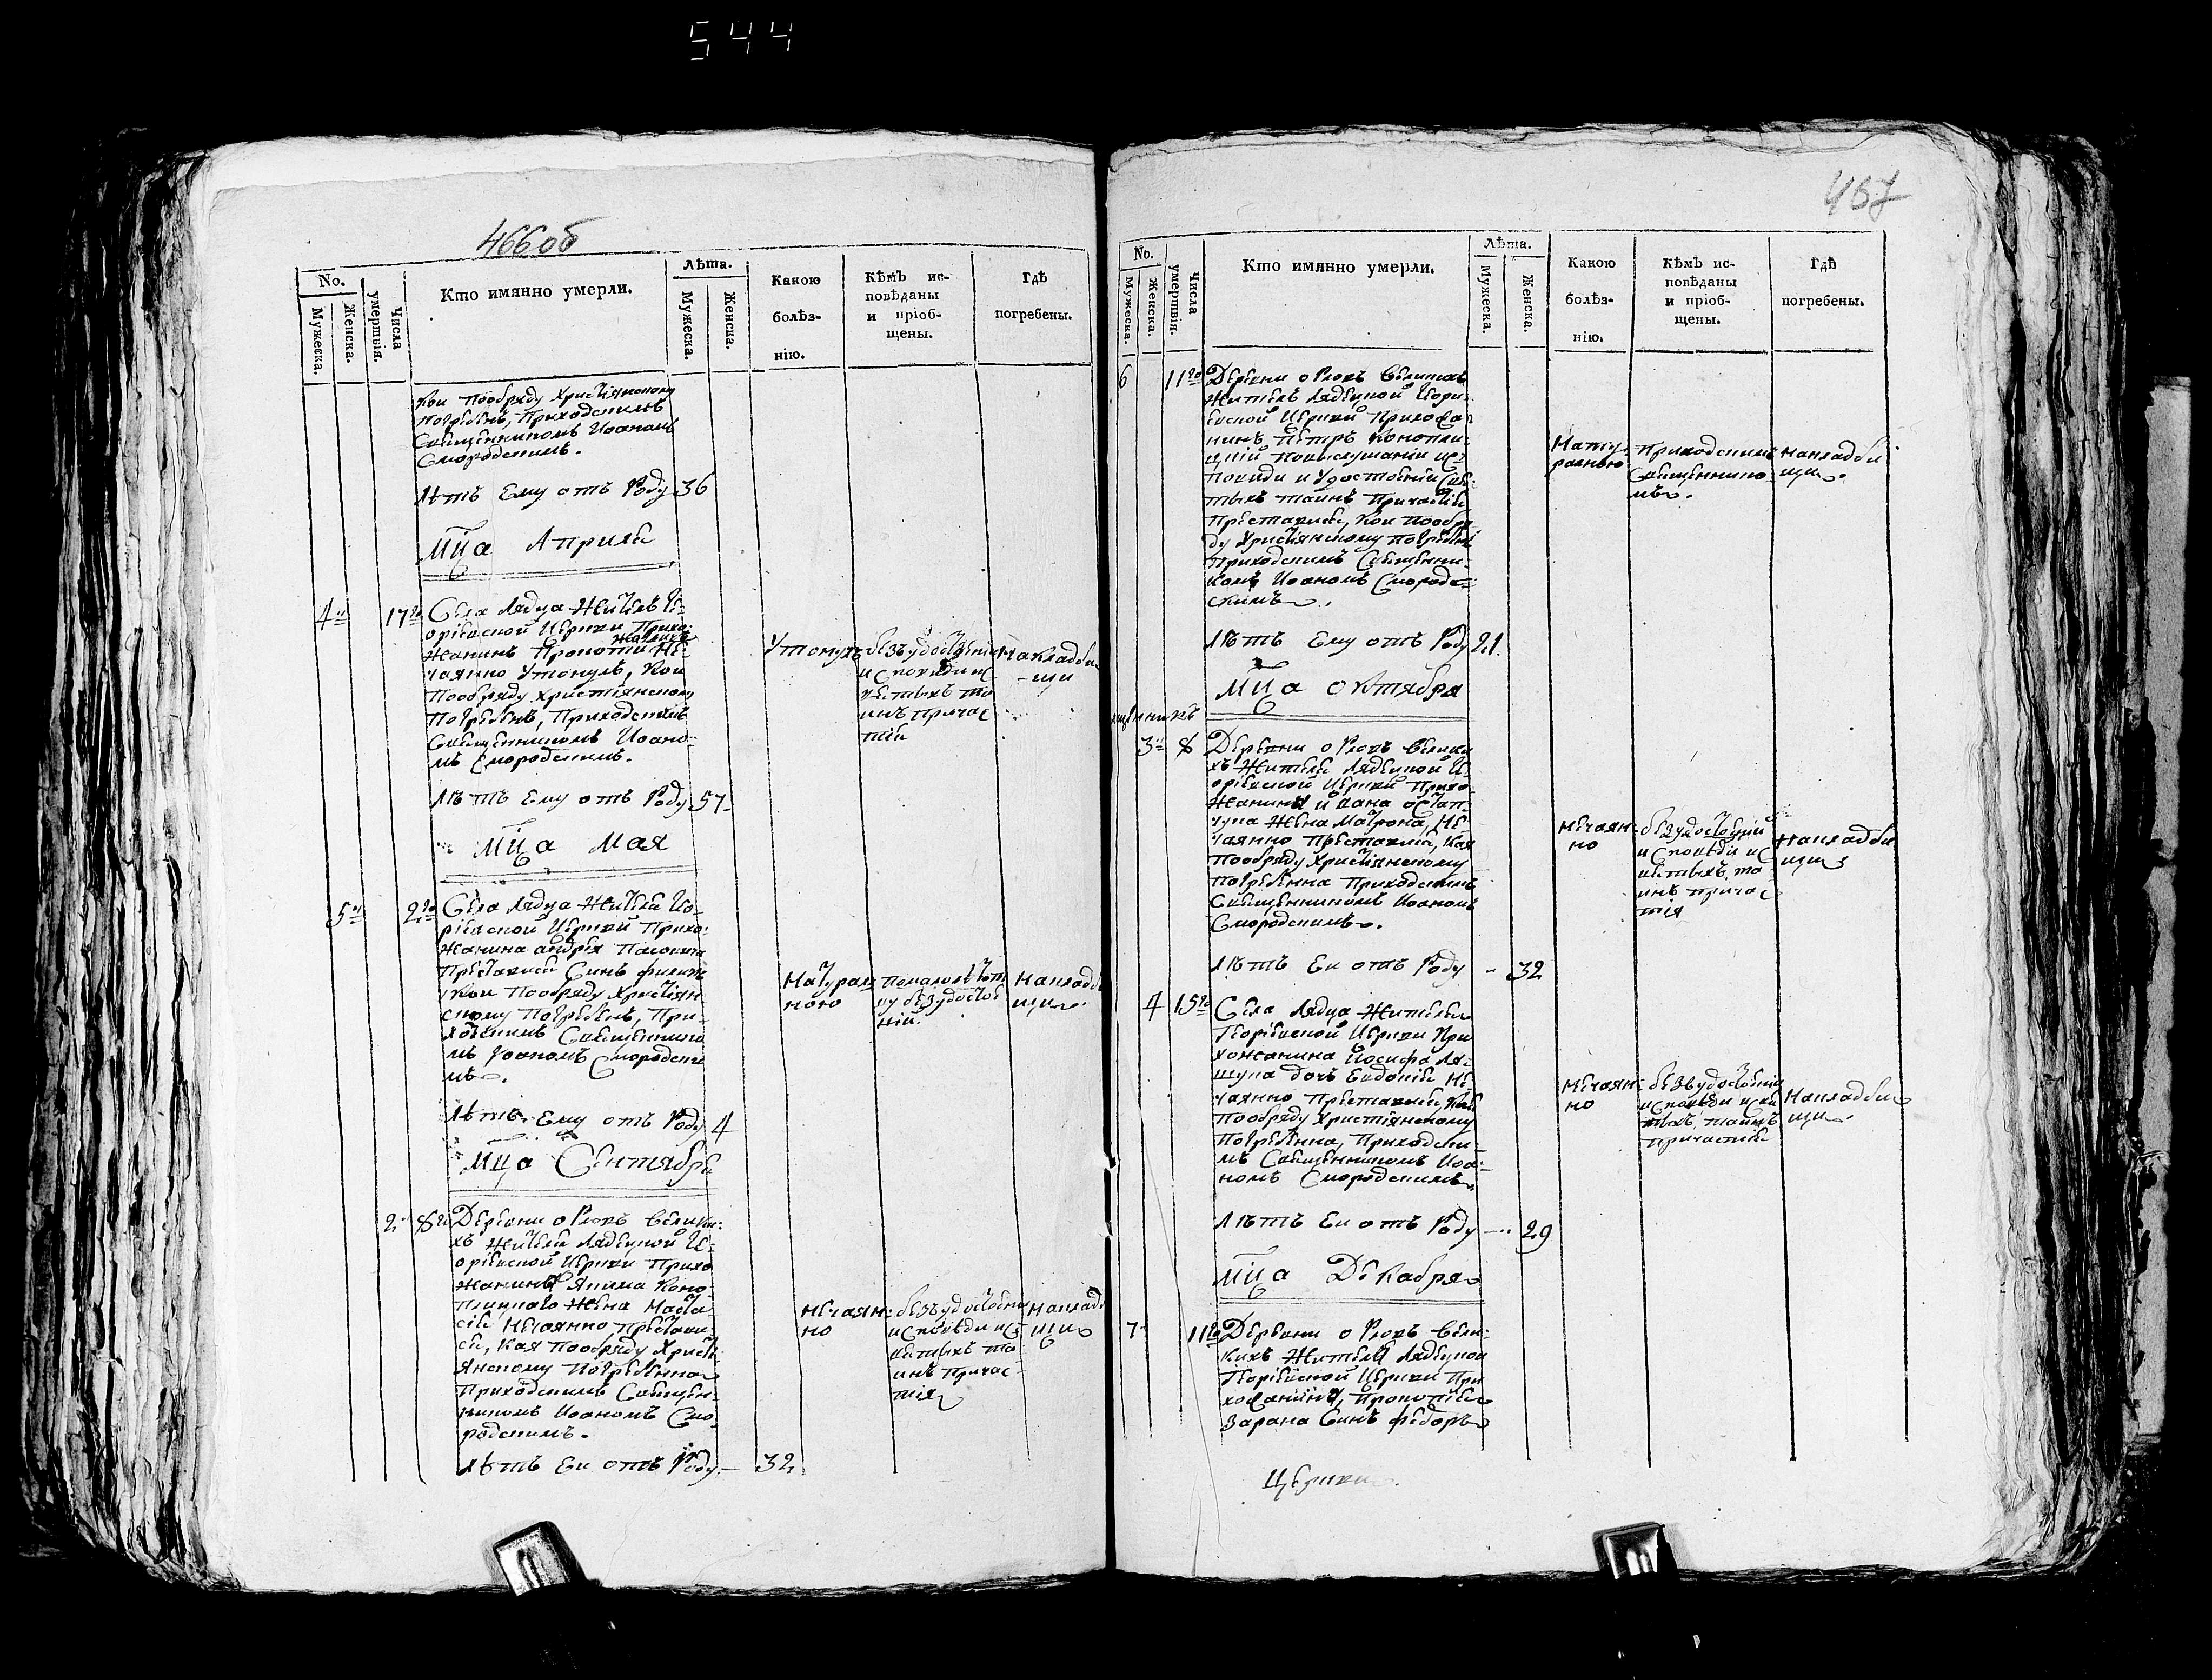 544
466об
No.
Мужеска.
Женска.
Числа умертвія.
Кто имянно умерли.
Лѣта.
Мужеска.
Женска.
Какою болѣз-
нію.
Кѣмъ ис-
повѣданы
и пріоб-
щены.
Гдѣ
погребены.
Кои пообряду христіянскому
погребенъ, Приходскимъ
Священникомъ Иоаномъ
Смородскимъ.
Лѣтъ Ему отъ Роду 36
Мца Априля
4й 17го Села Лядца Житель Ге-
оріевской Церкви Прихо-
жанинъ Прокопій Не-
чаянно Утонулъ, Кои
Пообряду христіянскому
Погребенъ, Приходскимъ
Священникомъ Иоано-
мъ Смородскимъ.
Утонулъ
безъ удостоенія
исповѣди и с
вятыхъ та
инъ причас
тія
накладби
-щи
Лѣтъ Ему отъ Роду 57
Мца Мая
5й 2го Села Лядца Жителя Ге-
оріевской Церкви Прихо-
жанина андрея
Преставися Синъ филипъ
Кои Пообряду Христіян-
скому Погребенъ, При-
ходскимъ Священнико
мъ Иоаномъ Смородски
мъ.
Натурал
ною
помалолѣт
ству безудостое
нія.
накладби
щи.
Лѣтъ Ему отъ Роду 4
Мца Сентября
2 8го Деревни оРловъ Велики-
хъ Жителя Лядецкой Ге-
оріевской Церкви Прихо
жанина Якима Коно-
плицкаго Жена Наста
сія Нечаянно Престави-
ся, Кая Пообряду Христі-
янскому Погребенна
Приходскимъ Священ-
никомъ Иоаномъ Смо-
родскимъ.
нечаян-
но
безъ удостоенія
исповѣди и с
вятыхъ та
инъ причас-
тія
накладби
щи
Лѣтъ Еи отъ Роду — 32
467
No.
Мужеска.
Женска.
Числа умертвія.
Кто имянно умерли.
Лѣта.
Мужеска.
Женска.
Какою
болѣз-
нію.
Кѣмъ ис-
повѣданы
и пріоб-
щены.
Гдѣ
погребены.
6 11го Деревни оРловъ Великихъ
Житель Лядецкой Геори-
евской Церкви Прихожа-
нинъ Петръ Конопли-
цкій повыслушаніи ис-
повиди и Удостоеніи Свя-
тыхъ таинъ Причастія
Преставися, Кои пообря-
ду Христіянскому погребенъ
Приходскимъ Священни-
комъ Иоаномъ Смород-
скимъ.
Нату-
ралною
приходскимъ
Священнико
мъ.
накладби
щи.
Лѣтъ Ему отъ Роду 21.
Мца октября
щенникъ
3й 8 Деревни оРловъ Велики
хъ Жителя Лядецкой Ге-
оріевской Церкви Прихо-
жанина ивана остап-
чука Жена Матрона, Не-
чаянно Преставися, Кая
Пообряду Христіянскому
погребенна Приходскимъ
Священникомъ Иоаномъ
Смородскимъ.
нечаян-
но
безудостоенія
исповѣди и с
вятыхъ та
инъ причас
тія
накладби
щи
Лѣтъ Еи отъ Роду - 32
4 15го Села Лядца Жителя
Георіевской Церкви При
хожанина Иосифа Ля-
шука дочъ Евдокія Не-
чаянно Преставися Кая
Пообряду Христіянскому
Погребенна, Приходски-
мъ Священникомъ Иоа-
номъ Смородскимъ.
нечаян-
но
безъ удостоенія
исповѣди и свя
тыхъ таинъ
причастія
накладби
щи.
Лѣтъ Еи отъ Роду — 29
Мца Декабря
7 11го Деревни оРловъ Вели-
кихъ Жителя Лядецкои
Георіевской Церкви При
хожанина, Прокопія
Зарана Синъ федоръ
Церкви